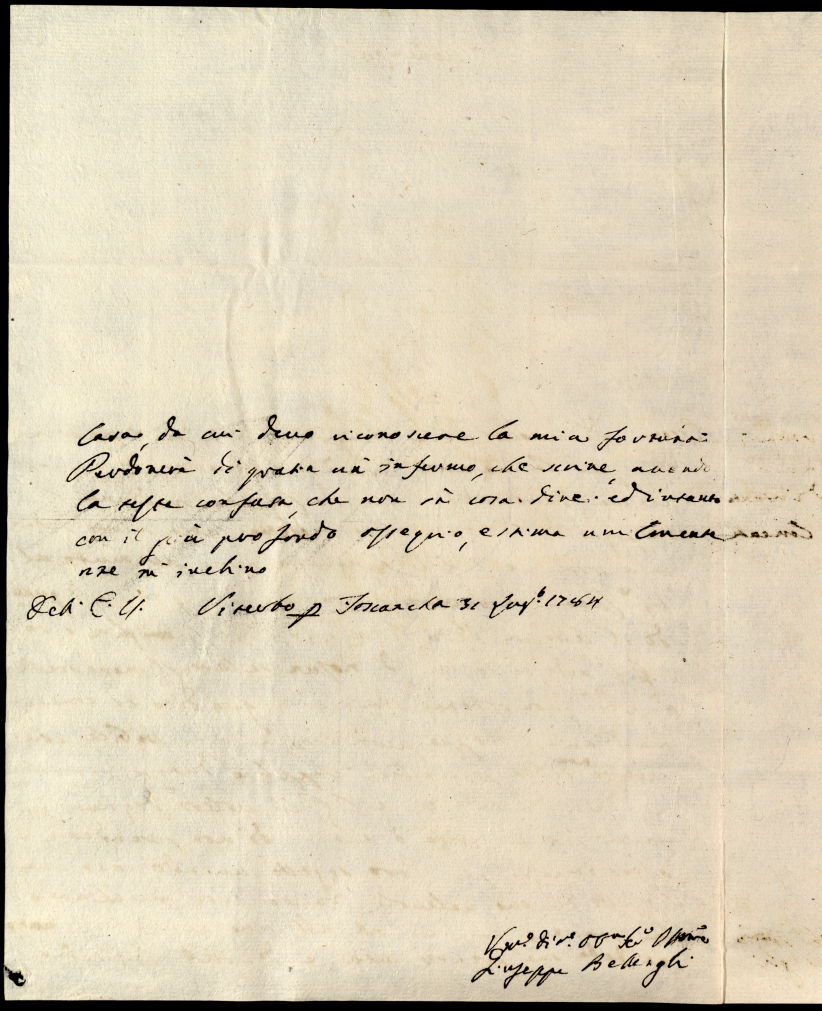 Casa, da cui devo riconoscere la mia fortuna:
Perdonerà di grazia un infermo, che scrive, avendo
la testa confusa, che non sà cosa dire: ed intanto
con il più profondo ossequio, e stima umilmente
me mi inchino
Dell' E. V. Viterbo p Toscanella 31 1784
Giuseppe Bellenghi